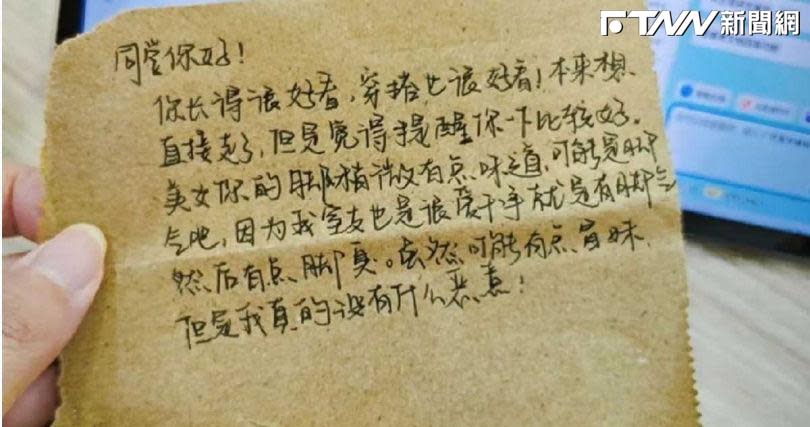 FTNN 新聞網
同学你好!
你长得很好看,穿搭也很好看!本来想
直接走了,但是觉得提醒你一下比较好。
美女你的脚稍微有点味道,可能是脚
气吧,因为我室友也是很爱干净就是有脚气
然后有点脚臭。虽然可能有点冒昧,
但是我真的没有什么恶意!